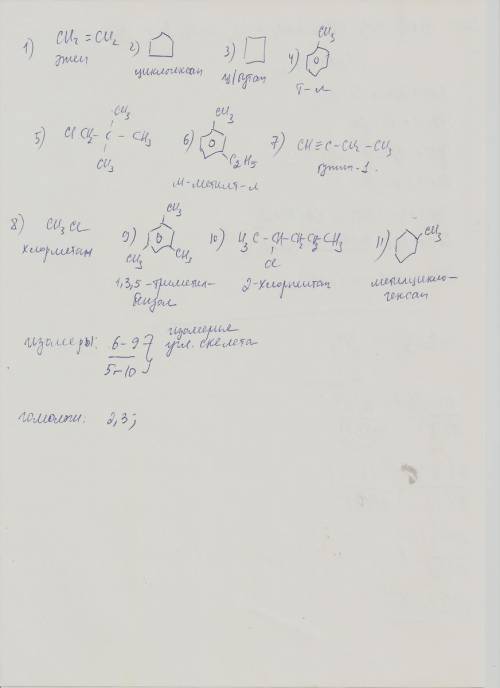 1) CH2 = CH2
этен
2)
циклогексан
3)
ц/бутан
4) CH3
т-л
5) Cl CH2 - C - CH3
CH3
CH3
6) CH3
C2H5
м-метилт-л
7) CH≡C-CH2-CH3
бутин-1.
8) CH3 Cl
хлорметан
9) CH3
CH3
CH3
1,3,5-триметил-
бензол
10) H3C-CH-CH2-CH2-CH3
Cl
2-хлорпентан
11) CH3
метилцикло-
гексан
изомеры: 6-9 } изомерия
5-10 угл. скелета
гомологи: 2,3;